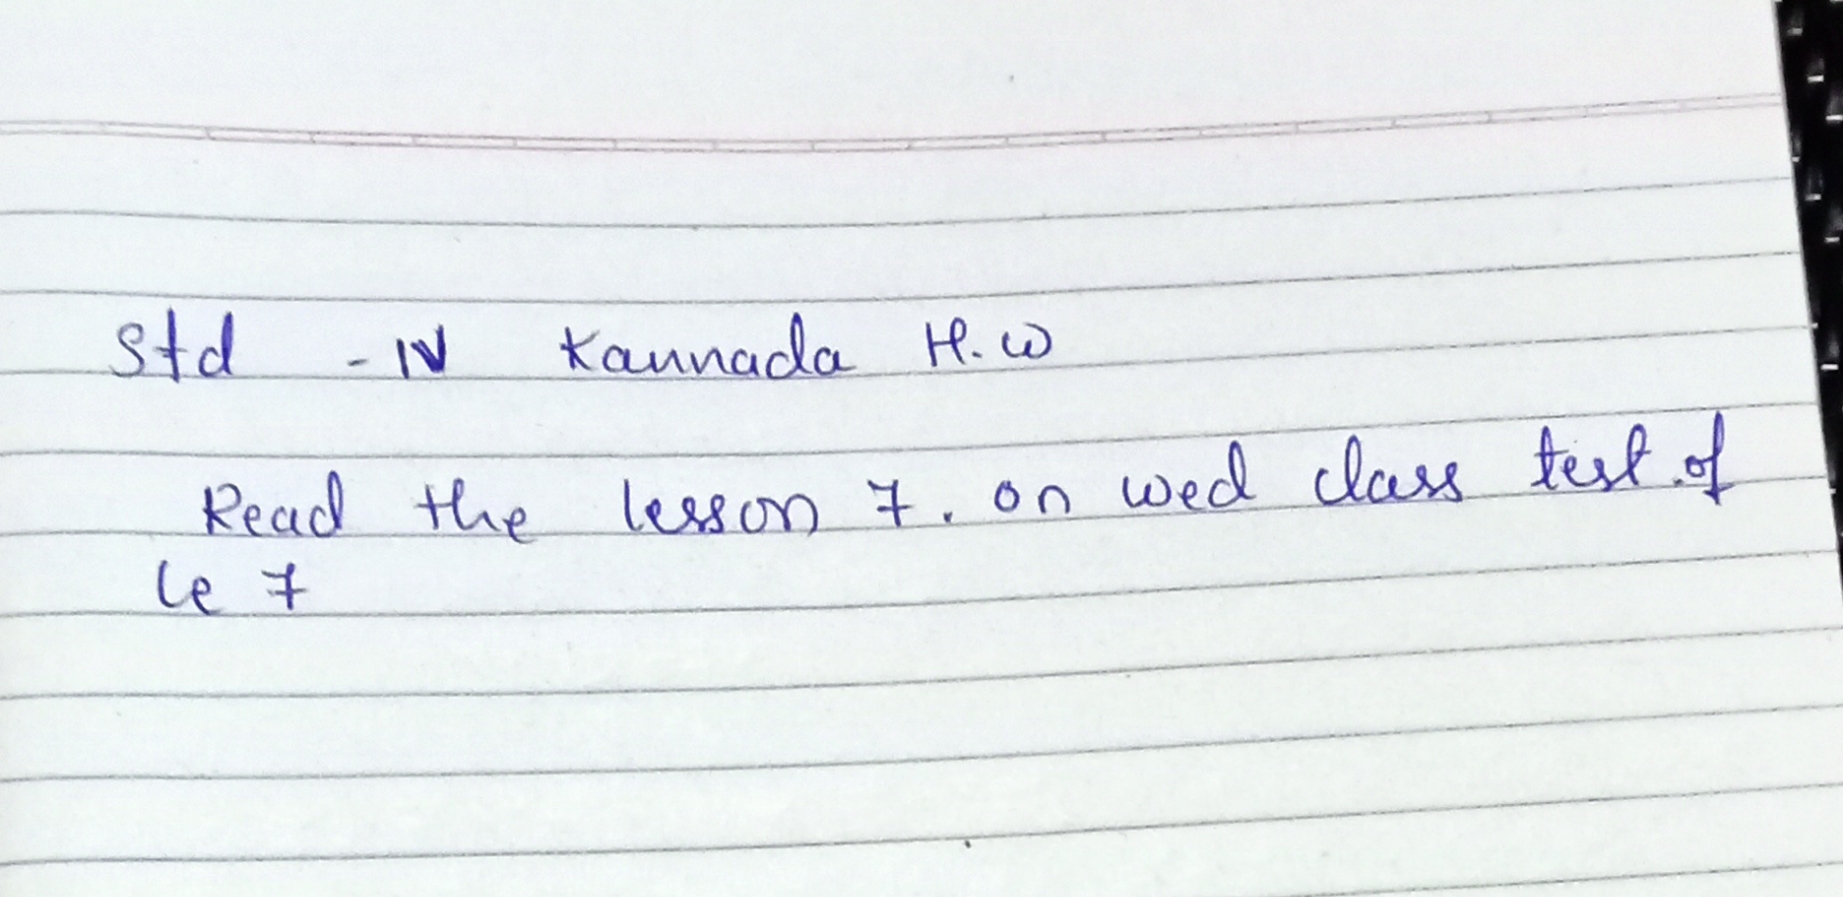 Std - IV Kannada H.W
Read the lesson 7. on wed class test of
le 7